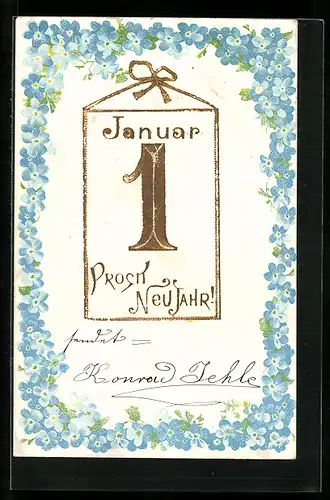 Januar
1
Prosit
Neujahr!
sendet =
Konrad Jehle